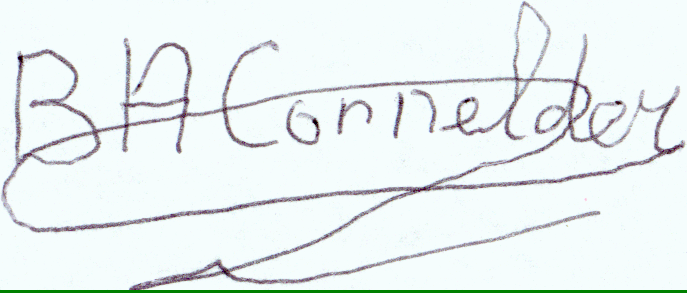 BA Connelder